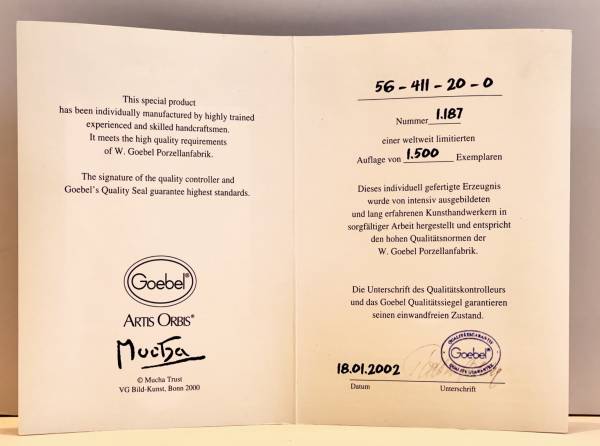 This special product
has been individually manufactured by highly trained
experienced and skilled handcraftsmen.
It meets the high quality requirements
of W. Goebel Porzellanfabrik.
The signature of the quality controller and
Goebel's Quality Seal guarantee highest standards.
Goebel®
ARTIS ORBIS®
Mucha
© Mucha Trust
VG Bild-Kunst, Bonn 2000
56-411-20-0
Nummer 1.187
einer weltweit limitierten
Auflage von 1.500 Exemplaren
Dieses individuell gefertigte Erzeugnis
wurde von intensiv ausgebildeten
und lang erfahrenen Kunsthandwerkern in
sorgfältiger Arbeit hergestellt und entspricht
den hohen Qualitätsnormen der
W. Goebel Porzellanfabrik.
Die Unterschrift des Qualitätskontrolleurs
und das Goebel Qualitätssiegel garantieren
seinen einwandfreien Zustand.
QUALITÄTSGARANTIE
Goebel®
QUALITY GUARANTEE
18.01.2002
Datum Unterschrift